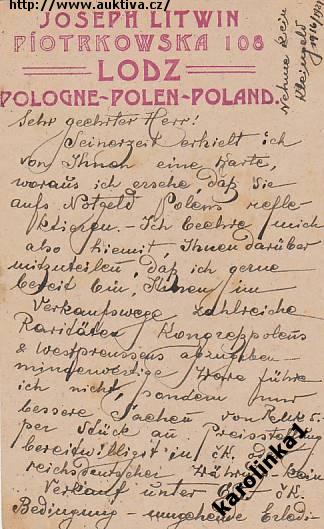 http://www.auktiva.cz/
JOSEPH LITWIN
PIOTRKOWSKA 108
LODZ
POLOGNE-POLEN-POLAND.
Nehme kein
Kleingeld
Sehr geehrter Herr!
Seinerzeit erhielt ich
von Ihnen eine Karte,
woraus ich ersehe, daß Sie
aufs Notgeld Polens refle-
ktieren. - Ich beehre mich
also hiemit, Ihnen darüber
mitzuteilen, daß ich gerne
bereit bin, Ihnen im
Verkaufswege zahlreiche
Raritäten Kongreßpolens
& Westpreussens abzugeben -
minderwertige Ware führe
ich nicht, sondern nur
bessere Sachen von RMk 5.-
per Stück an
bereitwilligst in öK. oder
reichsdeutscher Währung - kein
Verkauf unter öK
Bedingung - umgehende Erledi-
karolinka1